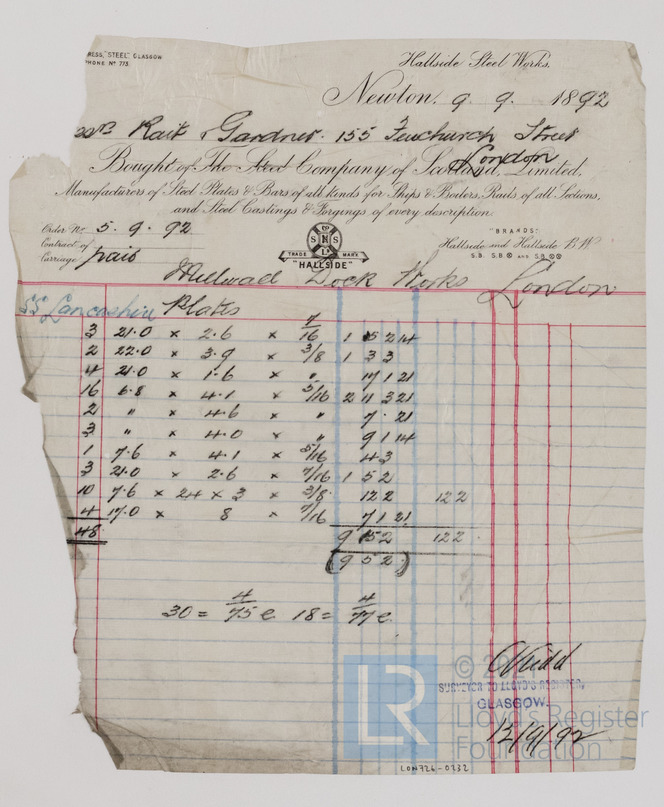 RESS, "STEEL" GLASGOW
PHONE Nº 773.
Hallside Steel Works,
Newton, 9 9 1892
Rait & Gardner 155 Fenchurch Street
London
Bought of The Steel Company of Scotland, Limited,
Manufacturers of Steel Plates & Bars of all kinds for Ships & Boilers, Rails of all Sections,
and Steel Castings & Forgings of every description.
Order Nº 5. 9. 92
Contract of
Carriage paid
S N S
TRADE MARK
"HALLSIDE"
"BRANDS"
Hallside and Hallside B.W
Millwall Dock Works London
SS Lancashire Plates
3 21.0 x 2.6 x 7/16 1 5 2 14
2 22.0 x 3.9 x 3/8 1 3 3
4 21.0 x 1.6 x " 17 1 21
16 6.8 x 4.1 x 5/16 2 11 3 21
2 " x 4.6 x " 7 . 21
3 " x 4.0 x " 9 1 14
1 7.6 x 4.1 x 5/16 4 3
3 21.0 x 2.6 x 7/16 1 5 2
10 7.6 x 24 x 3 x 3/8 12 2 12 2
4 17.0 x 8 x 7/16 7 1 21
48 9 5 2 12 2
(9 5 2)
30 = 4/75 e 18 = 4/77 e
SURVEYOR TO LLOYD'S REGISTER,
GLASGOW.
12/9/92
LR
Lloyd's Register
Foundation
LON726-0232